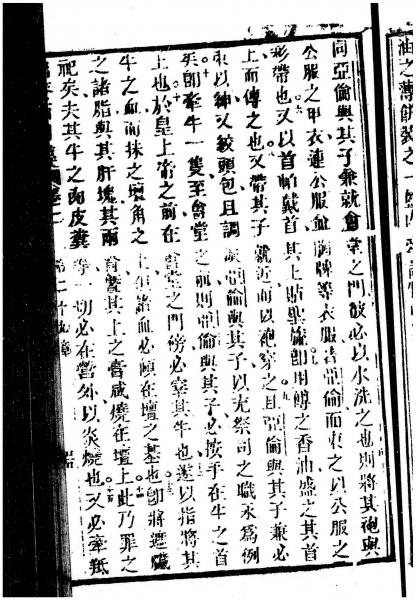 油之薄餅裝之一盤內
向亞倫與其子兼就會堂之門彼必以水洗之也則將其袍與
公服之甲衣連公服並胸牌等衣服着亞倫而束之以公服之
彩帶也又以首帕戴首其上貼聖旒即用罇之香油盛之其首
上而傅之也又帶其子就近而以袍穿之且亞倫與其子兼必
束以紳又絞頭包且調派亞倫與其子以充祭司之職永爲例
矣卽牽牛一隻至會堂之前則亞倫與其子必按手在牛之首
上也於皇上帝之前在會堂之門傍必宰其牛也遂以指將其
牛之血而抹之壇角之上其諸血必傾在壇之基也卽將遮臟
之諸脂與其肝塊其兩腎曁其上之膏咸燒在壇上此乃罪之
祀矣夫其牛之肉皮糞等一切必在營外以炎燒也又必牽羝
第二十九章